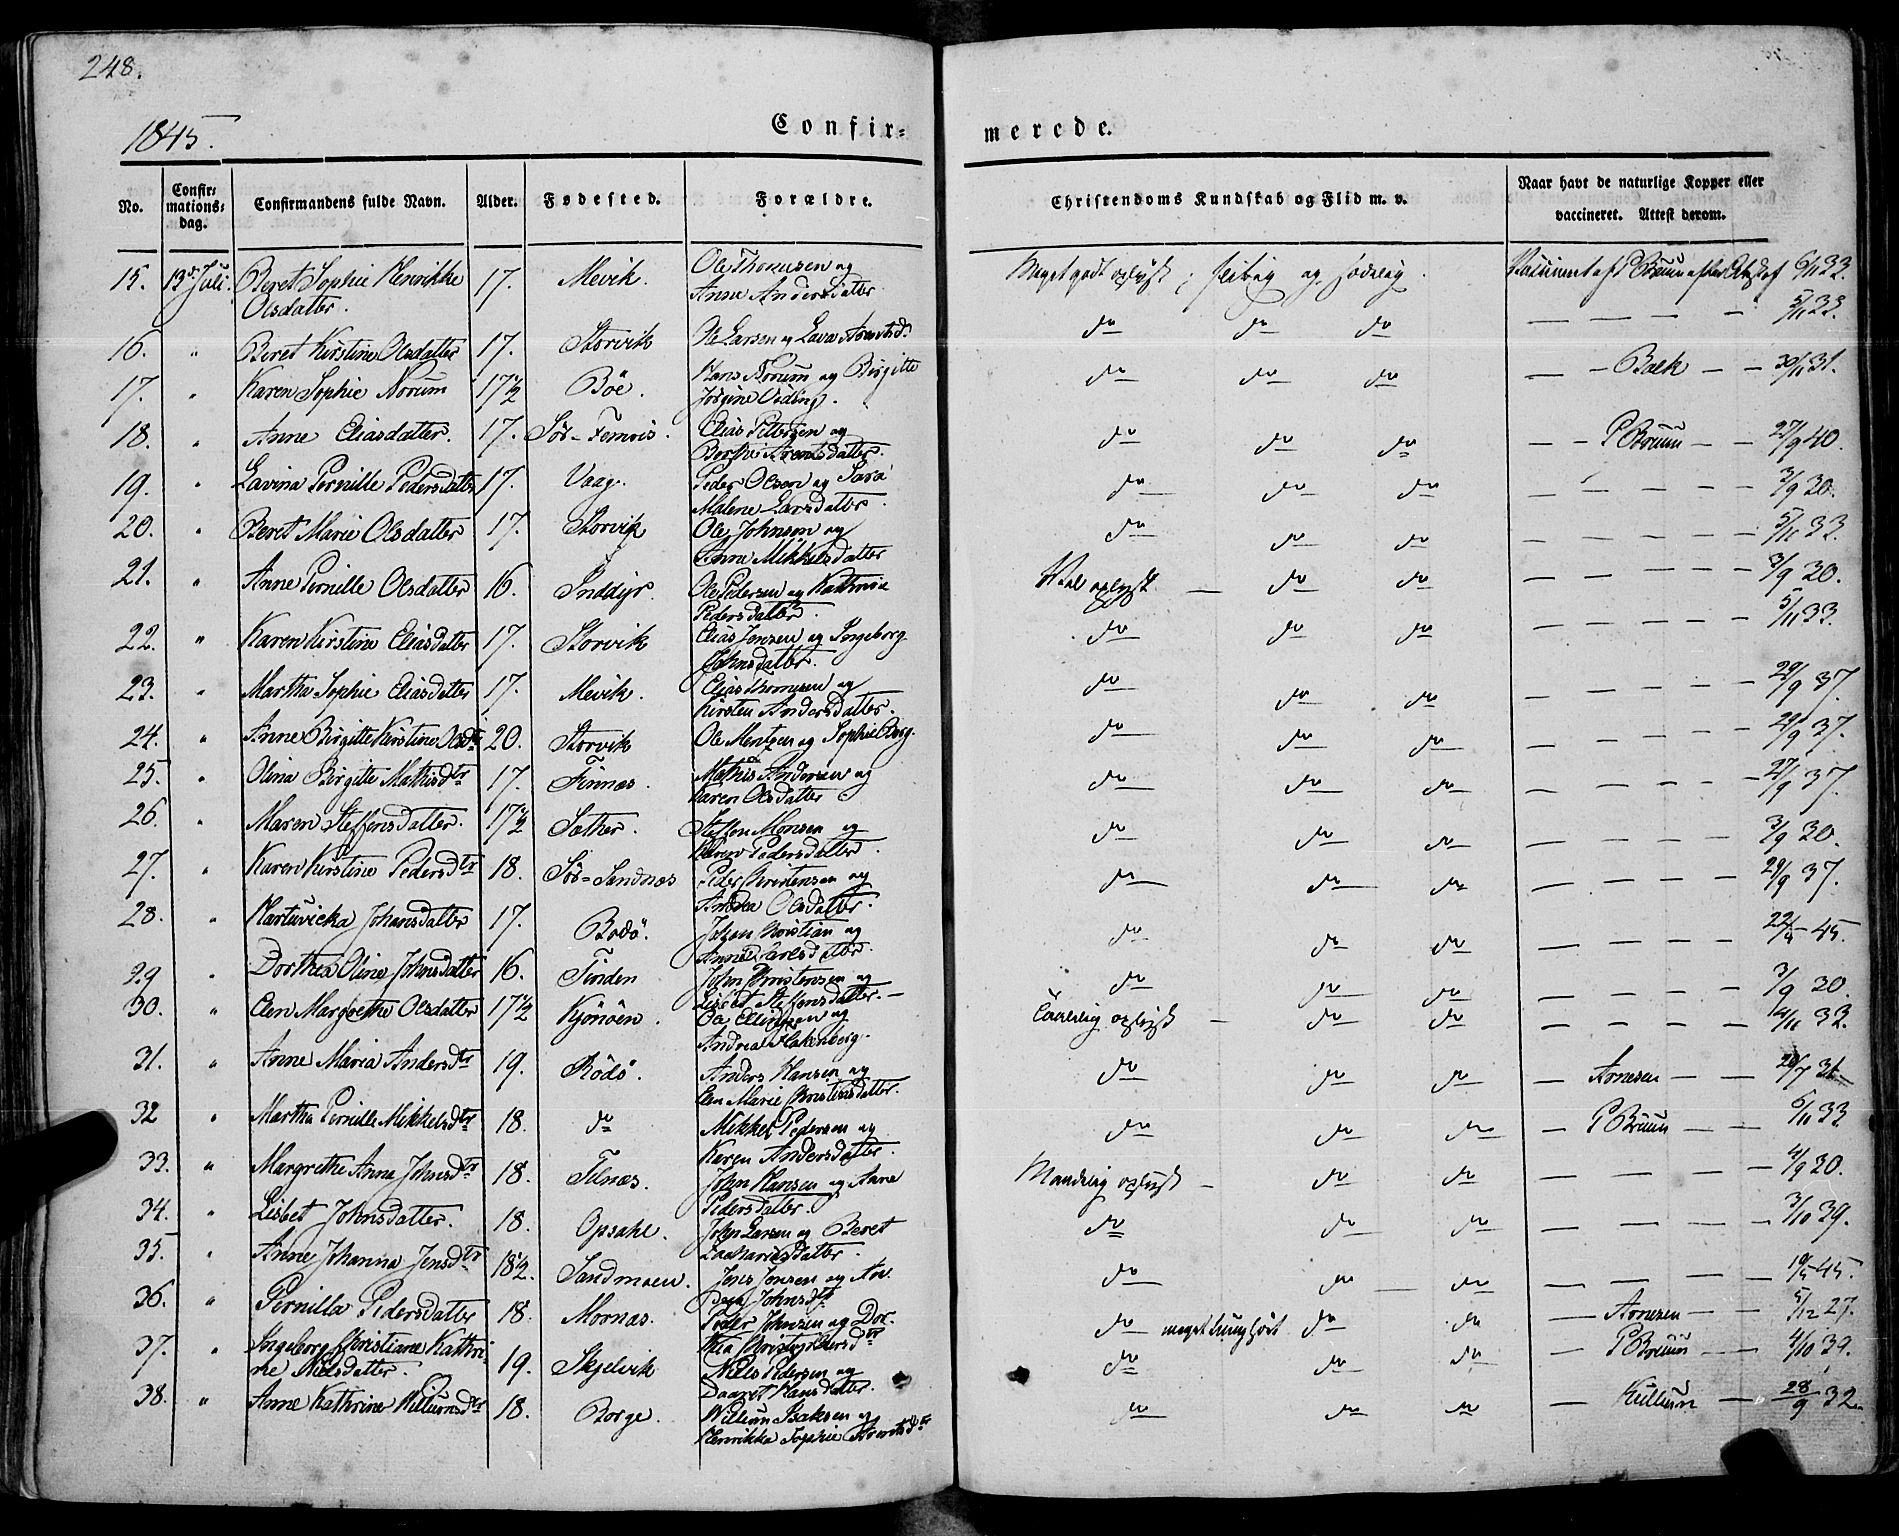 248.
1845.
Confir-
merede.
No.
Confir-
mations-
dag.
Confirmandens fulde Navn.
Alder.
Fødested.
Forældre.
Christendoms Kundskab og Flid m. v.
Naar havt de naturlige Kopper eller
vaccineret. Attest derom.
15. 13de Juli. Beret Sophie Henrikke 17. Mevik. Ole Thomesen og Meget godt oplyst; flittig og sædelig. 6/11 33.
Olsdatter. Anne Andersdatter
16. " Beret Kirstine Olsdatter 17. Storvik Ole Larsen og do do do — — — — 5/11 33.
17. " Karen Sophie Norum 17½ Böe. Hans Norum og Birgitte do do do — — Bæk — — 30/11 31.
18. " Anne Eliasdatter. 17. Sör-Femris. Elias Pettersen og do do do — — P Bruun — — 27/9 40.
Arentsdatter.
19. " Lavina Pernille Pedersdatter 17. Vaag. Peder Olsen og Sara do do do — — — — — 3/9 30.
Malene Larsdatter.
20. " Beret Marie Olsdatter 17. Storvik Ole Johnsen og do do do — — — — — 5/11 33.
Anne Mikkelsdatter
21. " Anne Pernille Olsdatter 16. Inddyr. Ole Pedersen og Kathrine Vel oplyst — do do — — — — — 3/9 30.
Pedersdatter.
22. " Karen Kirstine Eliasdatter 17. Storvik Elias Jensen og Ingeborg do do do — — — — — 5/11 33.
Johnsdatter.
23. " Martha Sophie Eliasdatter 17. Mevik. Elias Thomesen og do do do — — — — — 29/9 37.
Kirsten Andersdatter.
24. " Anne Birgitte Kirstine Olsdtr 20. Storvik Ole Mentzen og Sophie do do do — — — — — 29/9 37.
25. " Olina Birgitte Mathisdtr 17. Finnæs. Mathis Andersen og do do do — — — — — 27/9 37.
Karen Olsdatter
26. " Maren Steffensdatter. 17½ Sæther. Steffen Monsen og do do do — — — — — 3/9 30.
Karen Pedersdatter.
27. " Karen Kirstine Pedersdtr 18. Sör-Sandnæs Peder Christensen og do do do — — — — — 29/9 37.
Andrea Olsdatter.
28. " Hartvicka Johansdatter 17. Bodö. Johan Christian og do do do — — — — — 22/5 45.
29 " Dorthea Oline Johnsdatter 16. Finden John Christensen og do do do — — — — — 3/9 30.
Lisbet Steffensdatter. —
30. " Elen Margrethe Olsdatter 17½ Kjönöen. Ole Ellingsen og oplyst — do do — — — — — 4/11 33.
Andrea
31. " Anne Maria Andersdtr 19. Rödö. Anders Hansen og do do do — Arnesen — — 20/7 31
Elen Marie Christensdatter.
32 " Martha Pernille Mikkelsdtr 18. do Mikkel Pedersen og do do do — P Bruun — — 6/11 33
Karen Andersdatter.
33. " Margrethe Anne Johnsdtr 18. Felnæs. John Hansen og Anne Maadelig oplyst — do do — — — — — 4/9 30.
Pedersdatter.
34. " Lisbet Johnsdatter. 18. Opsahl. John Larsen og Beret do do do — — — — — 3/10 39.
Zachariasdatter.
35. " Anne Johanna Jensdtr 18½. Sandmoen. Jens Jensen og do do do — — — — — 19/5 45.
Johnsdtr
36. " Pernilla Pedersdatter 18. Mornæs. Peder Johnsen og Dor- do meget tunghört. do do — Arnesen — — 5/12 27.
thea
37. " Ingeborg Christiane Kathri- 19. Skjelvik Niels Pedersen og do do do — P Bruun — — 4/10 39.
ne Nielsdatter. Hansdatter.
38. " Anne Kathrine Willumsdtr 18. Borge. Willum Isaksen og do do do — — 28/9 32.
Henrikka Sophie Arentsdtr